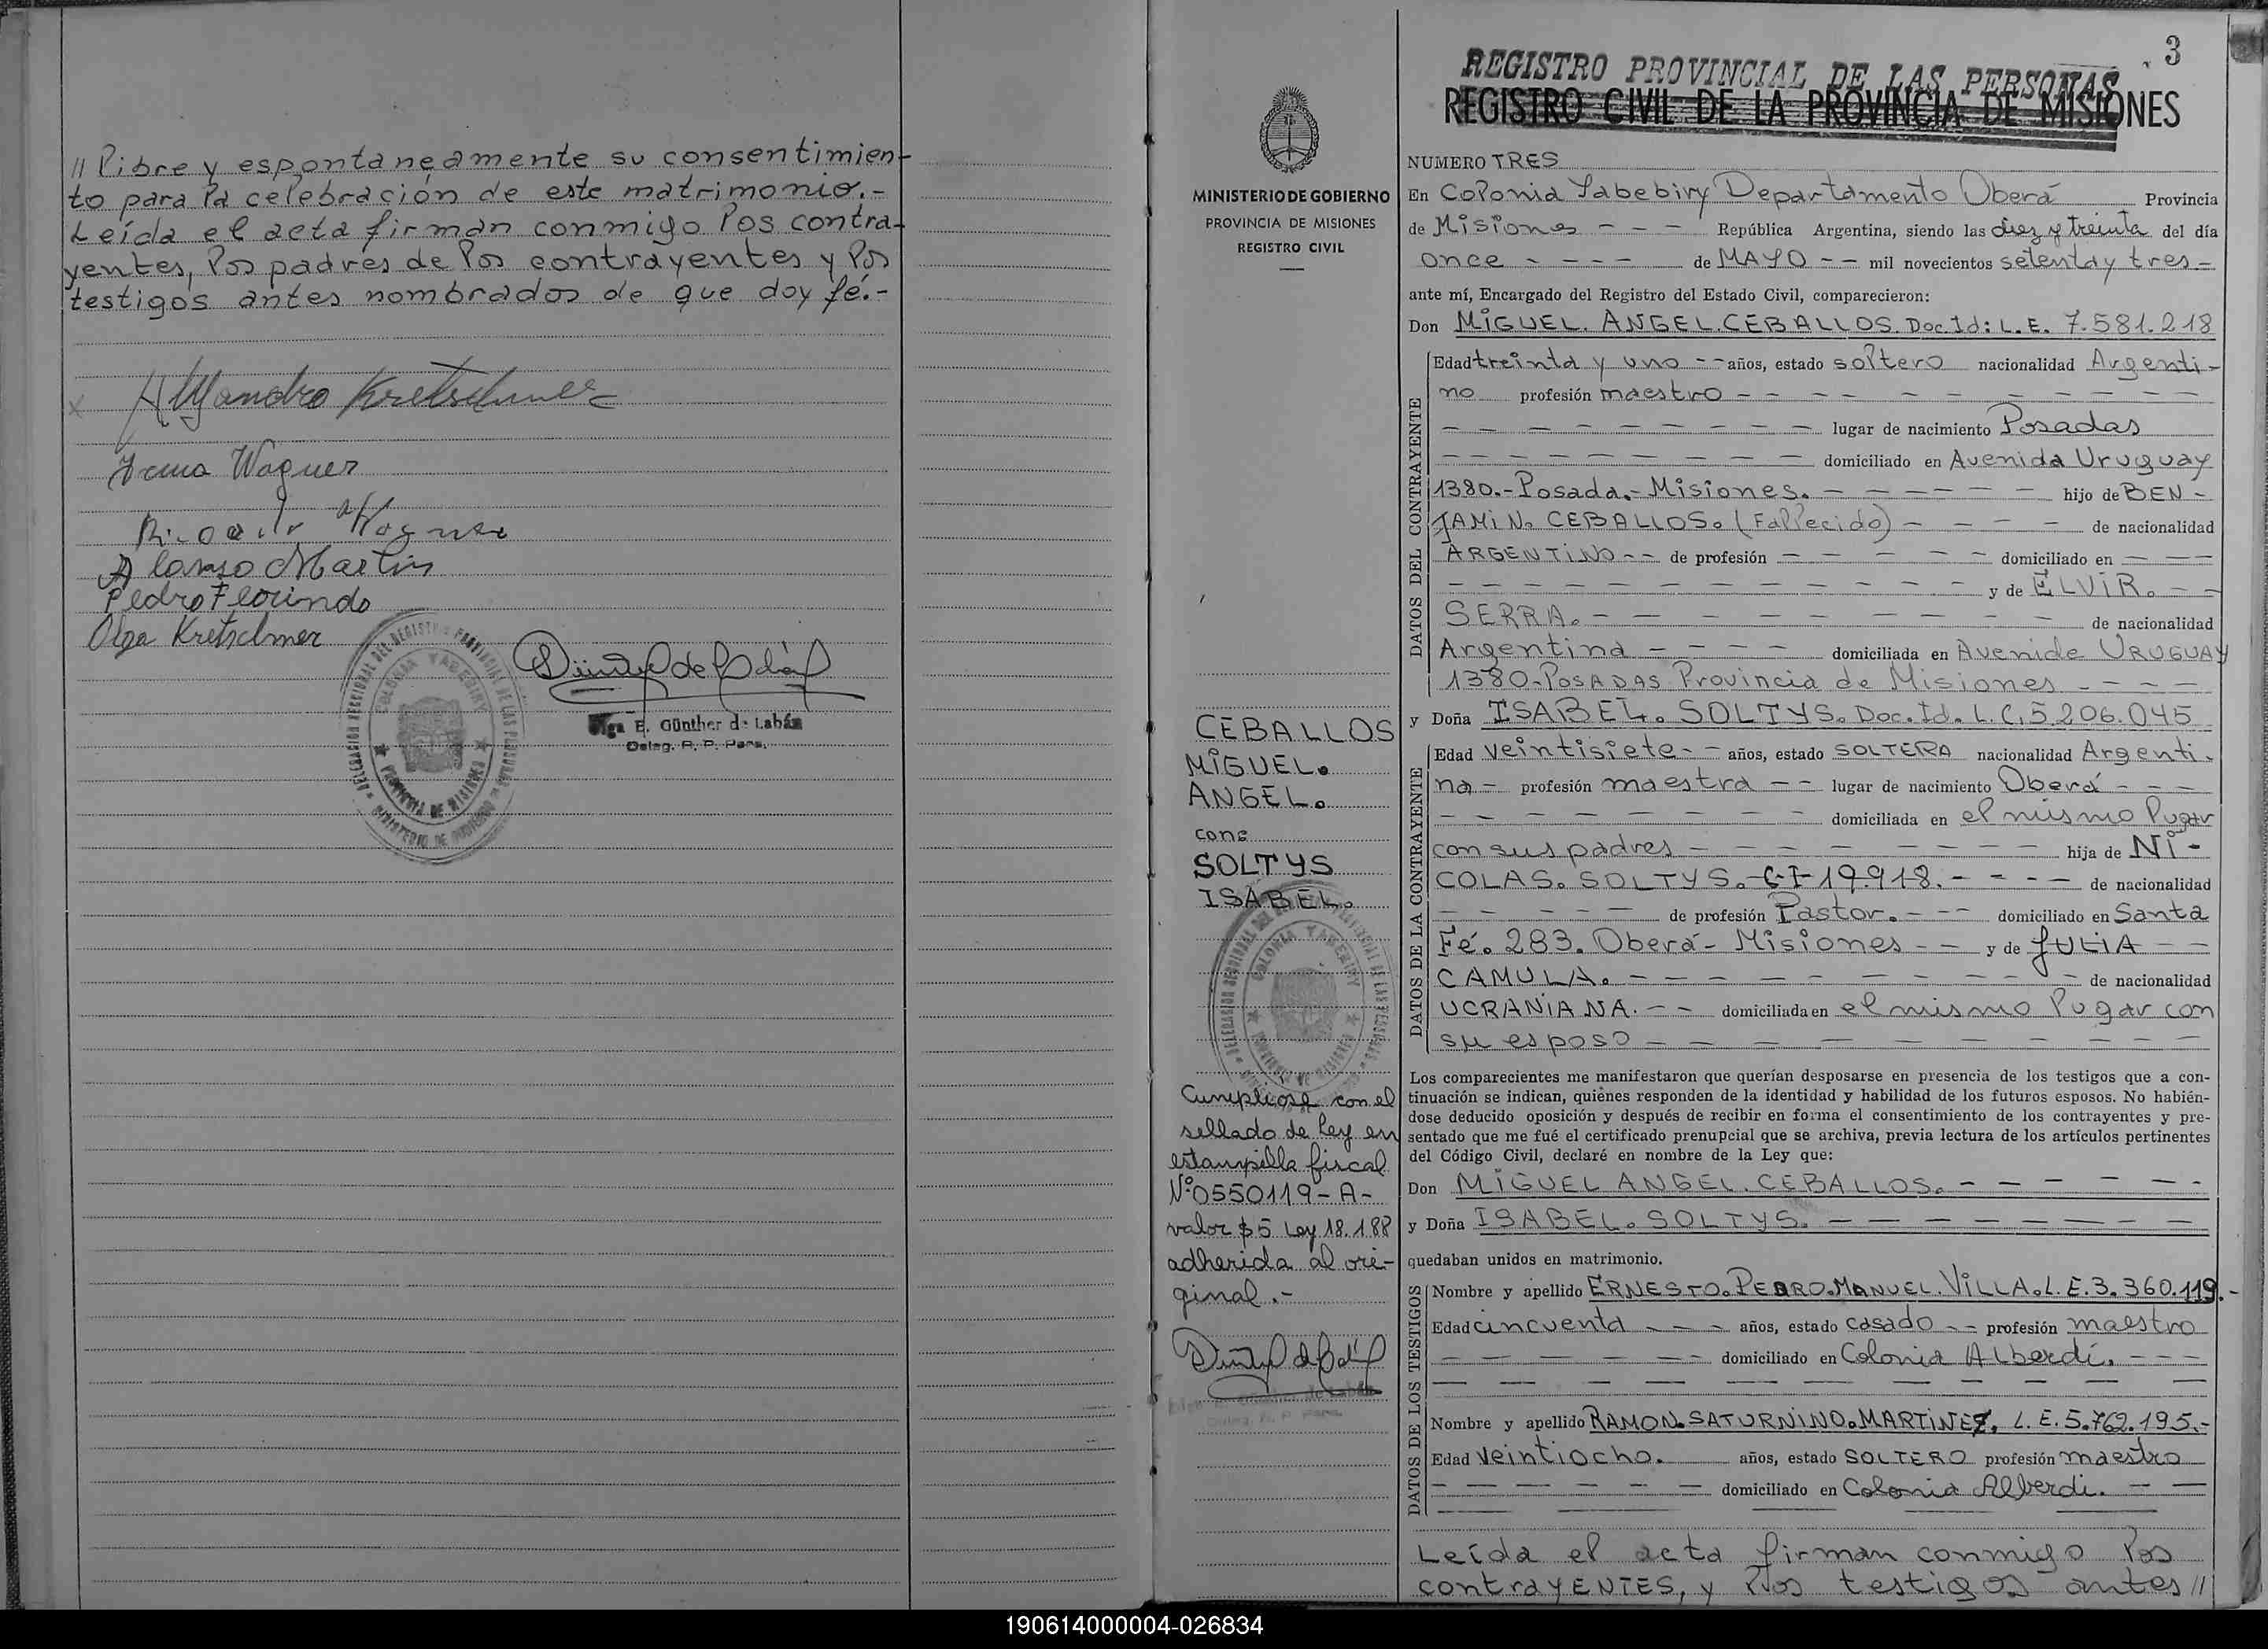 // libre y espontaneamente su consentimien-
to para la celebración de este matrimonio.-
Leída el acta firman conmigo los contra-
yentes, los padres de los contrayentes y los
testigos antes nombrados de que doy fé.-
Kretschmer
Irma Wagner
Ricardo Wagner
Alonso Martin
Pedro Florindo
Olga Kretschmer
DELEGACION SECCIONAL DEL REGISTRO PROVINCIAL DE LAS PERSONAS
COLONIA YABEBIRY
PROVINCIA DE MISIONES
MINISTERIO DE GOBIERNO
Olga E. Günther de Labán
Deleg. R. P. Pers.
MINISTERIO DE GOBIERNO
PROVINCIA DE MISIONES
REGISTRO CIVIL
CEBALLOS
MIGUEL.
ANGEL.
con=
SOLTYS
ISABEL.
COLONIA YABEBIRY
Cumplióse con el
sellado de ley en
estampilla fiscal
Nº0550119-A-
valor $5 Ley 18.188
adherida al ori-
ginal.-
3
REGISTRO PROVINCIAL DE LAS PERSONAS
REGISTRO CIVIL DE LA PROVINCIA DE MISIONES
NUMERO TRES
En Colonia Yabebiry Departamento Oberá Provincia
de Misiones - - - República Argentina, siendo las diez y treinta del día
once - - - - de MAYO - - mil novecientos setenta y tres -
ante mí, Encargado del Registro del Estado Civil, comparecieron:
Don MIGUEL. ANGEL. CEBALLOS. Doc. Id: L.E. 7.581.218
DATOS DEL CONTRAYENTE
Edad treinta y uno - - años, estado soltero nacionalidad Argenti-
no profesión maestro - - - - - - - - - -
- - - - - - - - - lugar de nacimiento Posadas
- - - - - - - - - domiciliado en Avenida Uruguay
1380.- Posada.- Misiones. - - - - - - hijo de BEN-
JAMIN. CEBALLOS. (Fallecido) - - - - de nacionalidad
ARGENTINO - - de profesión - - - - - domiciliado en - - -
- - - - - - - - - - - - - y de ELVIR. - -
SERRA. - - - - - - - - - de nacionalidad
Argentina - - - - domiciliada en Avenide URUGUAY
1380-POSADAS Provincia de Misiones - - - -
y Doña ISABEL. SOLTYS. Doc. Id. L.C. 5.206.045
DATOS DE LA CONTRAYENTE
Edad veintisiete - - años, estado SOLTERA nacionalidad Argenti-
na - profesión maestra - - lugar de nacimiento Oberá - - -
- - - - - - - - - domiciliada en el mismo lugar
con sus padres - - - - - - - - hija de NI-
COLAS. SOLTYS. C.I 19.918. - - - - de nacionalidad
- - - - - de profesión Pastor. - - - domiciliado en Santa
Fé. 283. Oberá - Misiones - - y de JULIA - -
CAMULA. - - - - - - - - - - de nacionalidad
UCRANIANA. - - domiciliada en el mismo lugar con
su esposo - - - - - - - - - -
Los comparecientes me manifestaron que querían desposarse en presencia de los testigos que a con-
tinuación se indican, quiénes responden de la identidad y habilidad de los futuros esposos. No habién-
dose deducido oposición y después de recibir en forma el consentimiento de los contrayentes y pre-
sentado que me fué el certificado prenupcial que se archiva, previa lectura de los artículos pertinentes
del Código Civil, declaré en nombre de la Ley que:
Don MIGUEL ANGEL. CEBALLOS. - - - - - -
y Doña ISABEL. SOLTYS. - - - - - - - -
quedaban unidos en matrimonio.
DATOS DE LOS TESTIGOS
Nombre y apellido ERNESTO. PEDRO. MANUEL. VILLA. L.E. 3.360.119.-
Edad cincuenta - - - años, estado casado - - profesión maestro
- - - - - - - domiciliado en Colonia Alberdi. - - -
- - - - - - - - - - -
Nombre y apellido RAMON. SATURNINO. MARTINEZ. L.E. 5.762.195.-
Edad Veintiocho. años, estado SOLTERO profesión maestro
- - - - - - domiciliado en Colonia Alberdi. - -
Leída el acta firman conmigo los
contrayENTES, y los testigos antes //
190614000004-026834